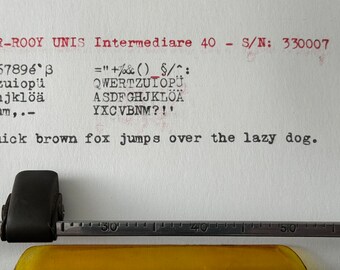 R-ROOY UNIS Intermediare 40 - S/N: 330007
56789é`β ="+%&() §/^:
zuiopü QWERTZUIOPÜ
hjklöä ASDFGHJKLÖÄ
nm,.- YXCVBNM?!'
uick brown fox jumps over the lazy dog.
30 40 50